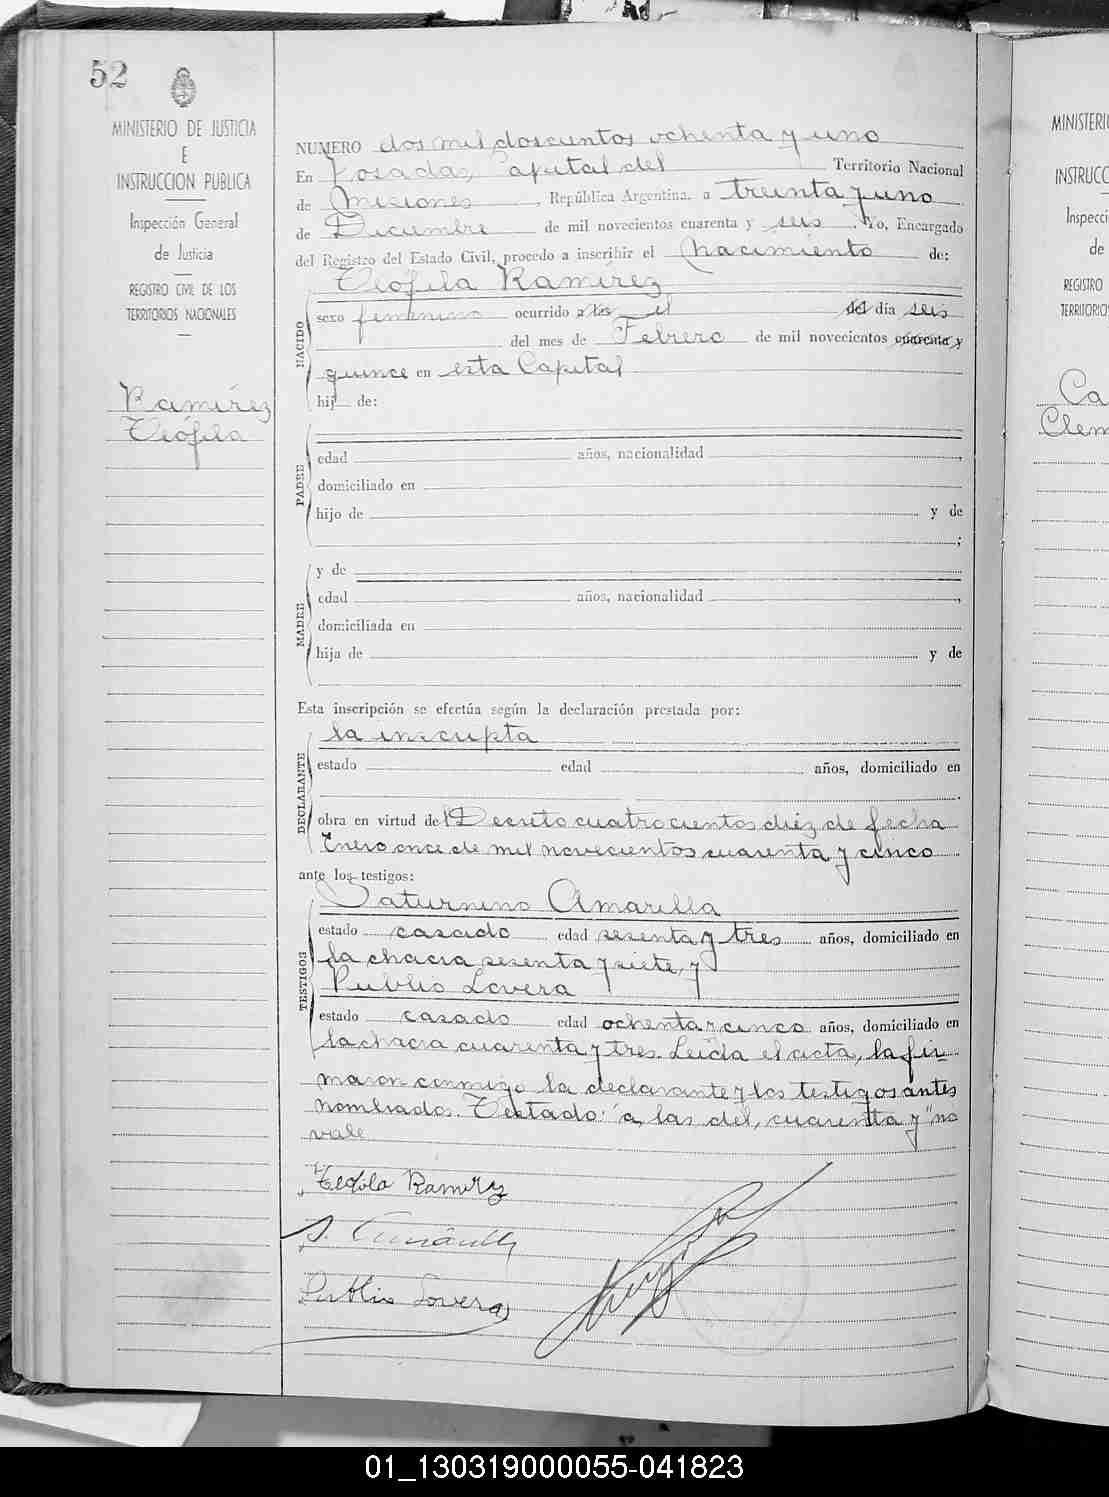 52
MINISTERIO DE JUSTICIA
E
INSTRUCCION PUBLICA
Inspección General
de Justicia
REGISTRO CIVIL DE LOS
TERRITORIOS NACIONALES
Ramírez
Teófila
NUMERO dos mil doscientos ochenta y uno
En Posadas, Capital del Territorio Nacional
de Misiones, República Argentina, a treinta y uno
de Diciembre de mil novecientos cuarenta y seis. Yo, Encargado
del Registro del Estado Civil, procedo a inscribir el Nacimiento de:
Teófila Ramírez
NACIDO
sexo femenino ocurrido a las el del día seis
del mes de Febrero de mil novecientos cuarenta y
quince en esta Capital
hij de:
PADRE
edad años, nacionalidad ,
domiciliado en
hijo de y de
;
MADRE
y de
edad años, nacionalidad ,
domiciliada en
hija de y de
Esta inscripción se efectúa según la declaración prestada por:
la inscripta
DECLARANTE
estado edad años, domiciliado en
.
obra en virtud del Decreto cuatrocientos diéz de fecha
Enero once de mil novecientos cuarenta y cinco
ante los testigos:
Saturnino Amarilla
TESTIGOS
estado casado edad sesenta y tres años, domiciliado en
la chacra sesenta y siete, y
Publio Lovera
estado casado edad ochenta y cinco años, domiciliado en
la chacra cuarenta y tres. Leída el acta, la fir-
maron conmigo la declarante y los testigos antes
nombrados. Testado: "a las del, cuarenta y" no
vale
Teofola Ramirez
S. Amarilla
Publio Lovera
MINISTERI
INSTRUCC
Inspecci
de
REGISTRO
TERRITORIOS
Ca
Clem
01_130319000055-041823